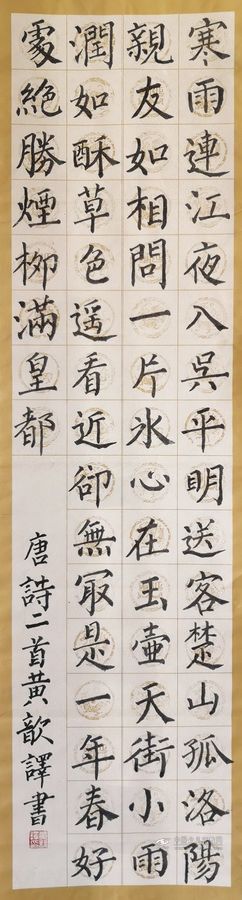 寒雨連江夜入吳平明送客楚山孤洛陽
親友如相問一片氷心在玉壺天街小雨
潤如酥草色遥看近卻無冣是一年春好
處絕勝煙栁滿皇都
唐詩二首黃歆譯書